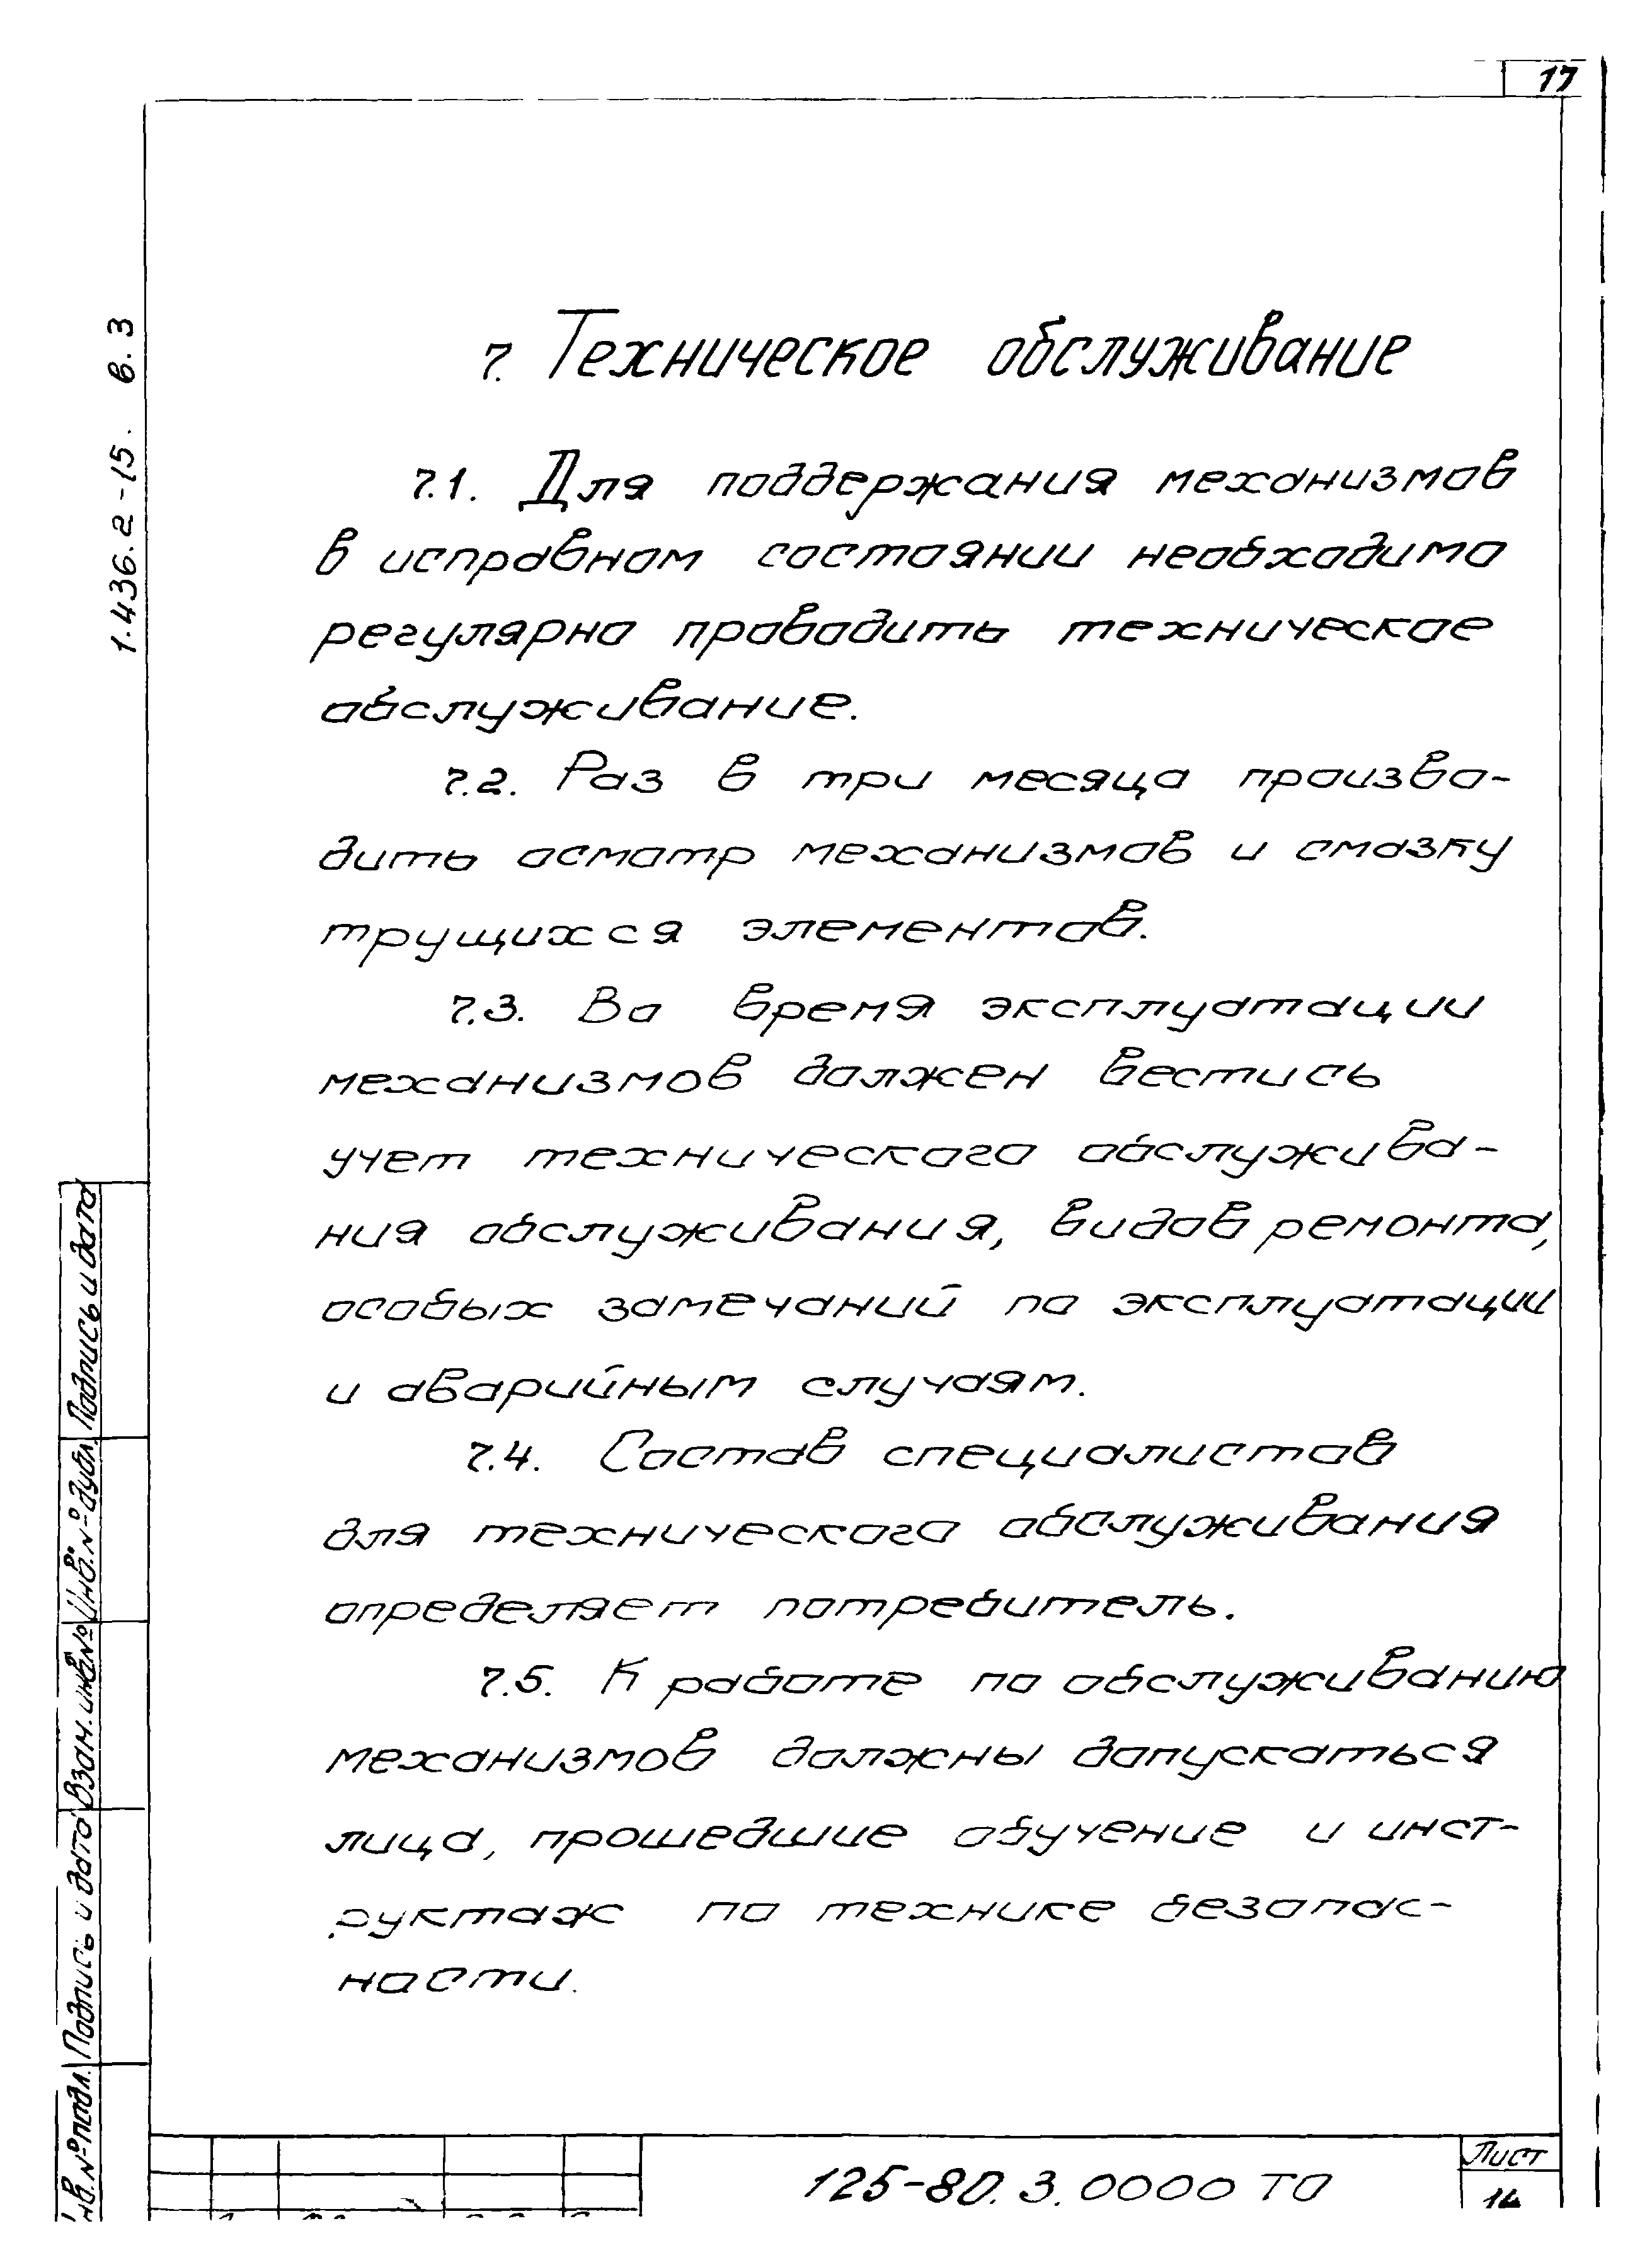 17
1.436.2-15. в.3
7. Техническое обслуживание
7.1. Для поддержания механизмов
в исправном состоянии необходимо
регулярно проводить техническое
обслуживание.
7.2. Раз в три месяца произво-
дить осмотр механизмов и смазку
трущихся элементов.
7.3. Во время эксплуатации
механизмов должен вестись
учет технического обслужива-
ния обслуживания, видов ремонта,
особых замечаний по эксплуатации
и аварийным случаям.
7.4. Состав специалистов
для технического обслуживания
определяет потребитель.
7.5. К работе по обслуживанию
механизмов должны допускаться
лица, прошедшие обучение и инст-
руктаж по технике безопас-
ности.
Подпись и дата
Инв. № дубл.
Взам. инв. №
Подпись и дата
нв. № подл.
125-80.3.0000 ТО
Лист